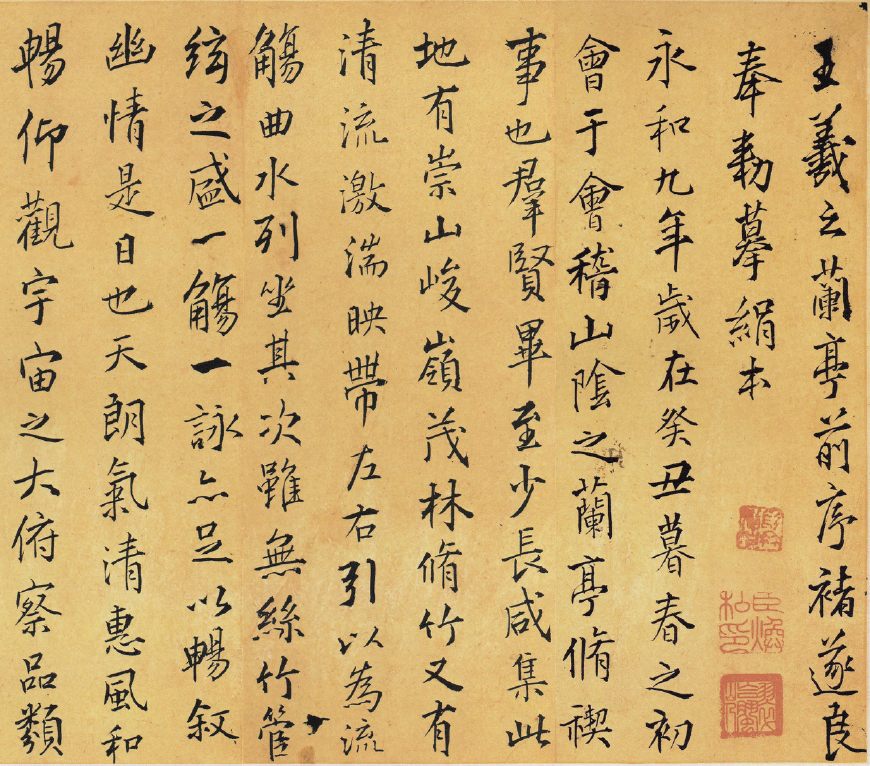 王羲之蘭亭前序褚遂良
奉勅摹絹本
永和九年歲在癸丑暮春之初
會于會稽山陰之蘭亭脩禊
事也羣賢畢至少長咸集此
地有崇山峻嶺茂林脩竹又有
清流激湍映帶左右引以為流
觴曲水列坐其次雖無絲竹管
絃之盛一觴一詠亦足以暢叙
幽情是日也天朗氣清惠風和
暢仰觀宇宙之大俯察品類